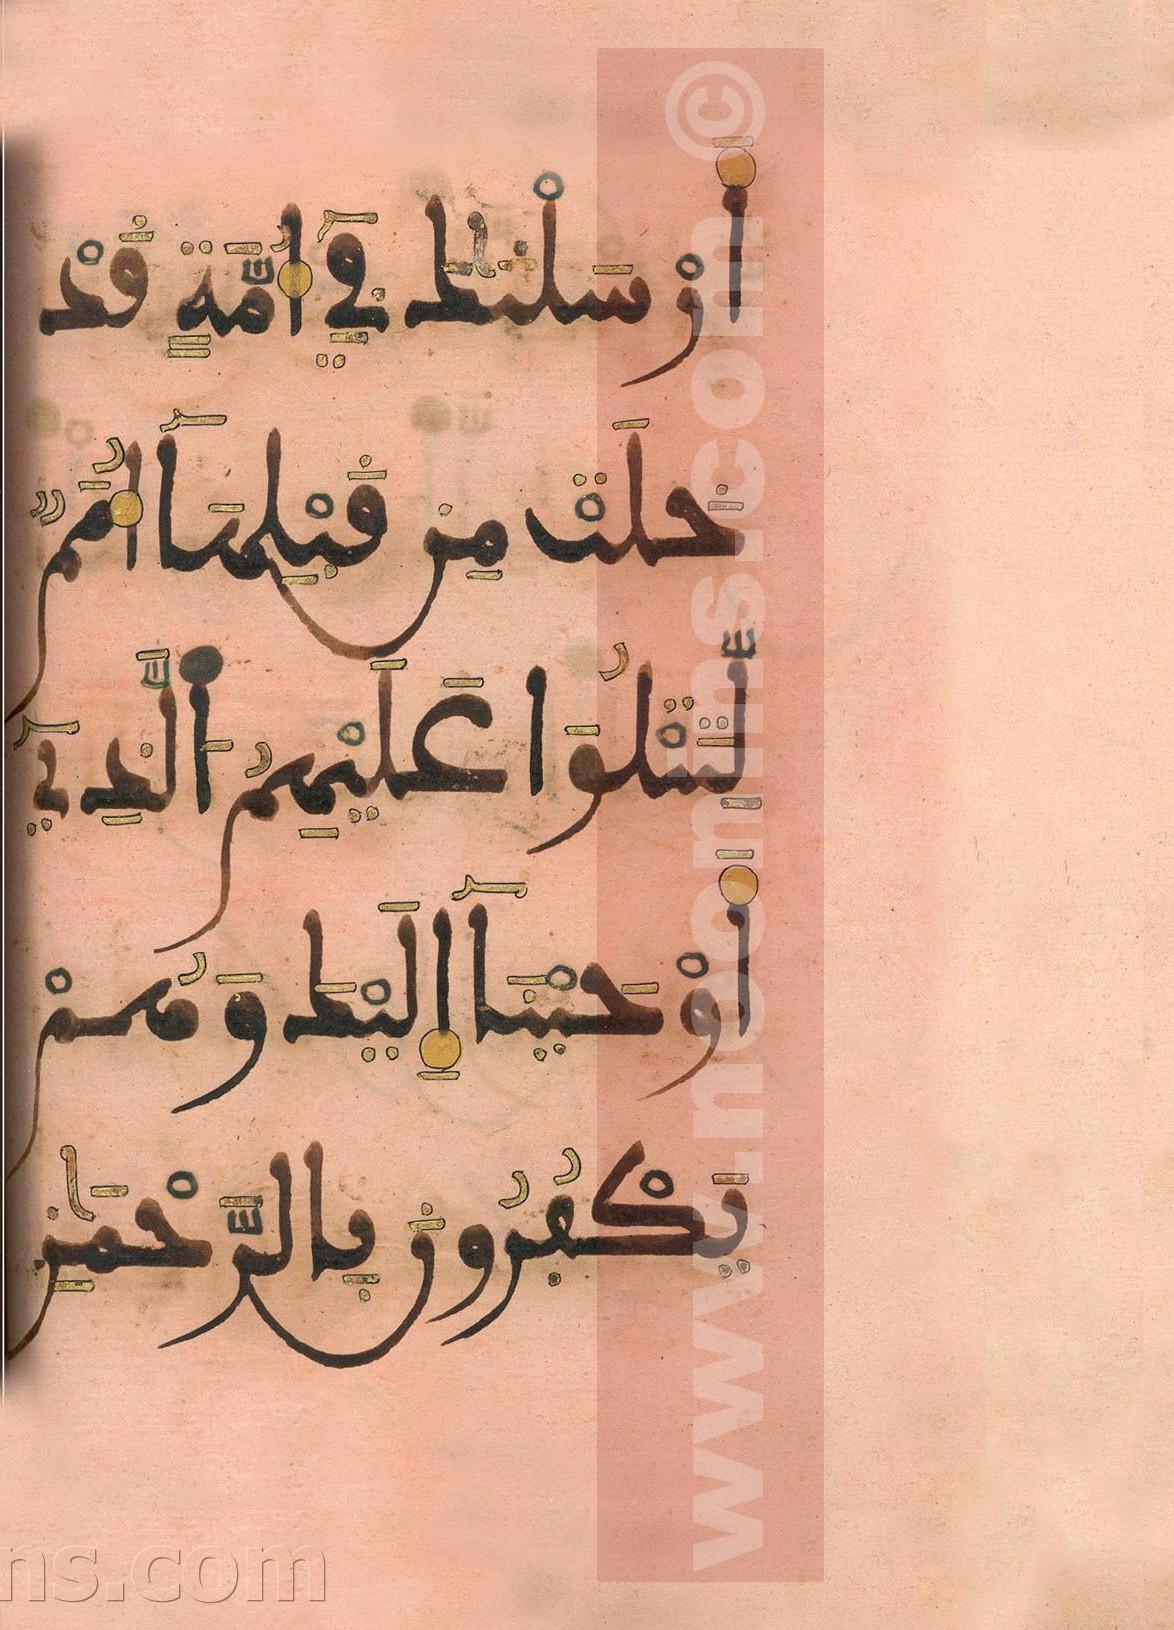 أَرْسَلْنَٰكَ فِيٓ أُمَّةٍ قَدْ
خَلَتْ مِن قَبْلِهَآ أُمَمٌ
لِّتَتْلُوَا۟ عَلَيْهِمُ ٱلَّذِيٓ
أَوْحَيْنَآ إِلَيْكَ وَهُمْ
يَكْفُرُونَ بِالرَّحْمَٰنِ
www.noonins.com ©
ns.com